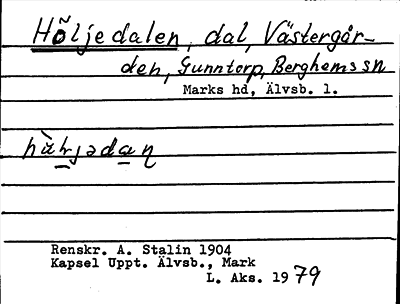 Höljedalen, dal, Västergår-
den, Gunntorp, Berghems sn
Marks hd, Älvsb. l.
hàḷjədaṇ
Renskr. A. Stalin 1904
Kapsel Uppt. Älvsb., Mark
L. Aks. 1979